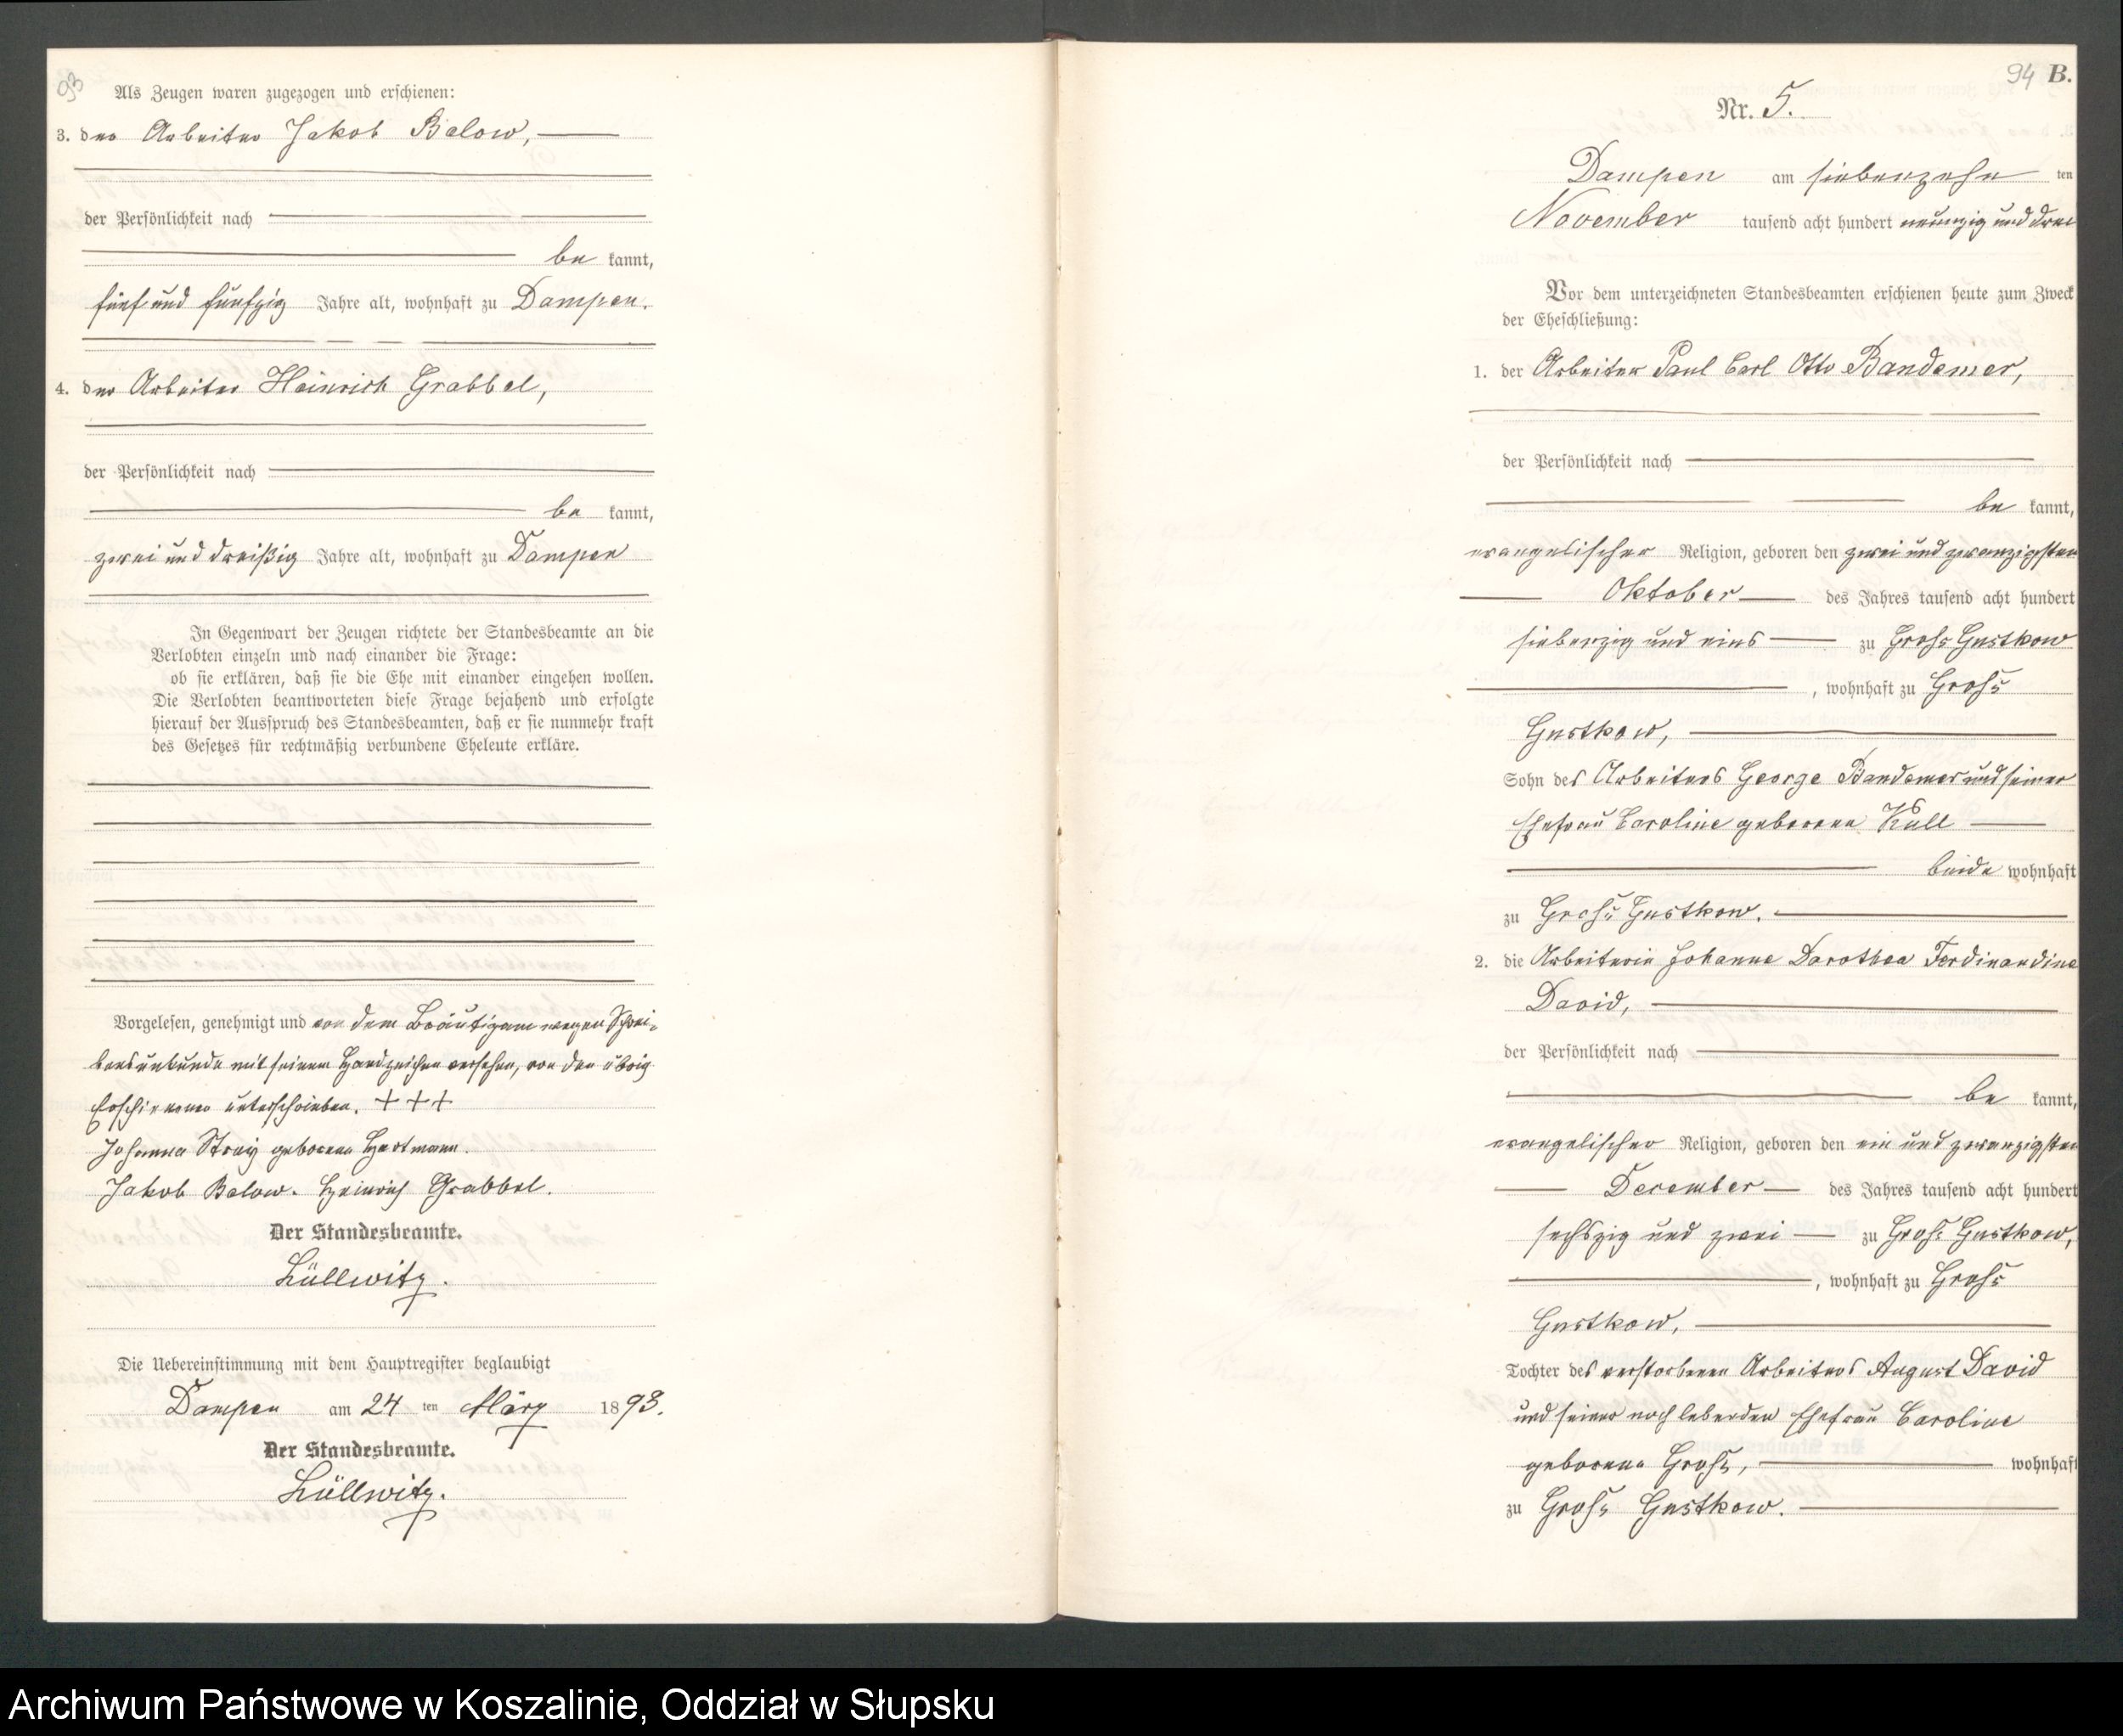 93
Als Zeugen waren zugezogen und erschienen:
3. der Arbeiter Jakob Balow,
der Persönlichkeit nach
be kannt,
fünf und fünfzig Jahre alt, wohnhaft zu Dampen.
4. der Arbeiter Heinrich Grabbel,
der Persönlichkeit nach
be kannt,
zwei und dreißig Jahre alt, wohnhaft zu Dampen
In Gegenwart der Zeugen richtete der Standesbeamte an die
Verlobten einzeln und nach einander die Frage:
ob sie erklären, daß sie die Ehe mit einander eingehen wollen.
Die Verlobten beantworteten diese Frage bejahend und erfolgte
hierauf der Ausspruch des Standesbeamten, daß er sie nunmehr kraft
des Gesetzes für rechtmäßig verbundene Eheleute erkläre.
Vorgelesen, genehmigt und von dem Bräutigam wegen Schrei-
bensunkunde mit seinem Handzeichen versehen, von den übrig
Erschienenen unterschrieben. +++
Johanna geborene Hartmann.
Jakob Balow. Heinrich Grabbel.
Der Standesbeamte.
Lüllwitz.
Die Uebereinstimmung mit dem Hauptregister beglaubigt
Dampen am 24 ten März 1893.
Der Standesbeamte.
Lüllwitz.
94 B.
Nr. 5.
Dampen am siebenzehn ten
November tausend acht hundert neunzig und drei
Vor dem unterzeichneten Standesbeamten erschienen heute zum Zweck
der Eheschließung:
1. der Arbeiter Paul Carl Otto Bandemer,
der Persönlichkeit nach
be kannt,
evangelischer Religion, geboren den zwei und zwanzigsten
Oktober des Jahres tausend acht hundert
siebenzig und eins zu Groß Gustkow
, wohnhaft zu Groß
Gustkow,
Sohn des Arbeiters George Bandemer und seiner
Ehefrau Caroline geborene Kull
beide wohnhaft
zu Groß Gustkow.
2. die Arbeiterin Johanne Dorothea Ferdinandine
David,
der Persönlichkeit nach
be kannt,
evangelischer Religion, geboren den ein und zwanzigsten
December des Jahres tausend acht hundert
sechszig und zwei zu Groß Gustkow,
, wohnhaft zu Groß
Gustkow,
Tochter des verstorbenen Arbeiters August David
und seiner noch lebenden Ehefrau Caroline
geborene Groß, wohnhaft
zu Groß Gustkow.
Archiwum Państwowe w Koszalinie, Oddział w Słupsku